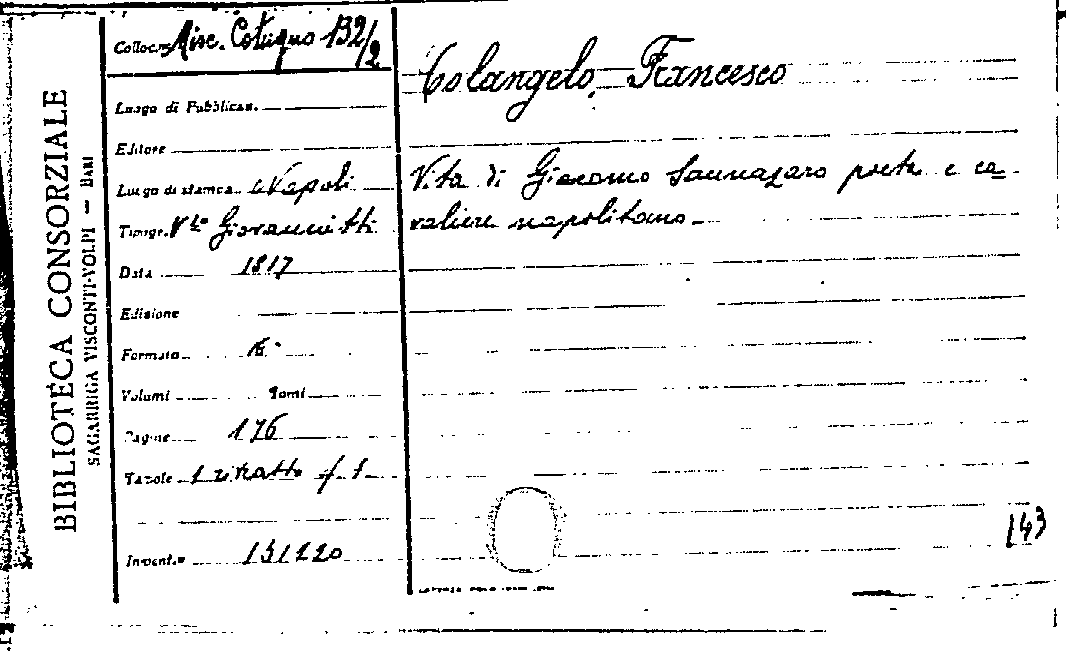 BIBLIOTECA CONSORZIALE
SAGARRIGA VISCONTI-VOLPI — BARI
Colloc.ne Misc. Cotugno 132/2
Luogo di Pubblicaz.
Editore
Luogo di stampa Napoli
Tipogr.
Data 1817
Edizione
Formato 16°
Volumi Tomi
Pagine 176
Tavole 1 ritratto f. 1
Invent.o 151220
Colangelo, Francesco
Vita di Giacomo Sannazaro poeta e ca-
valiere napolitano.
143